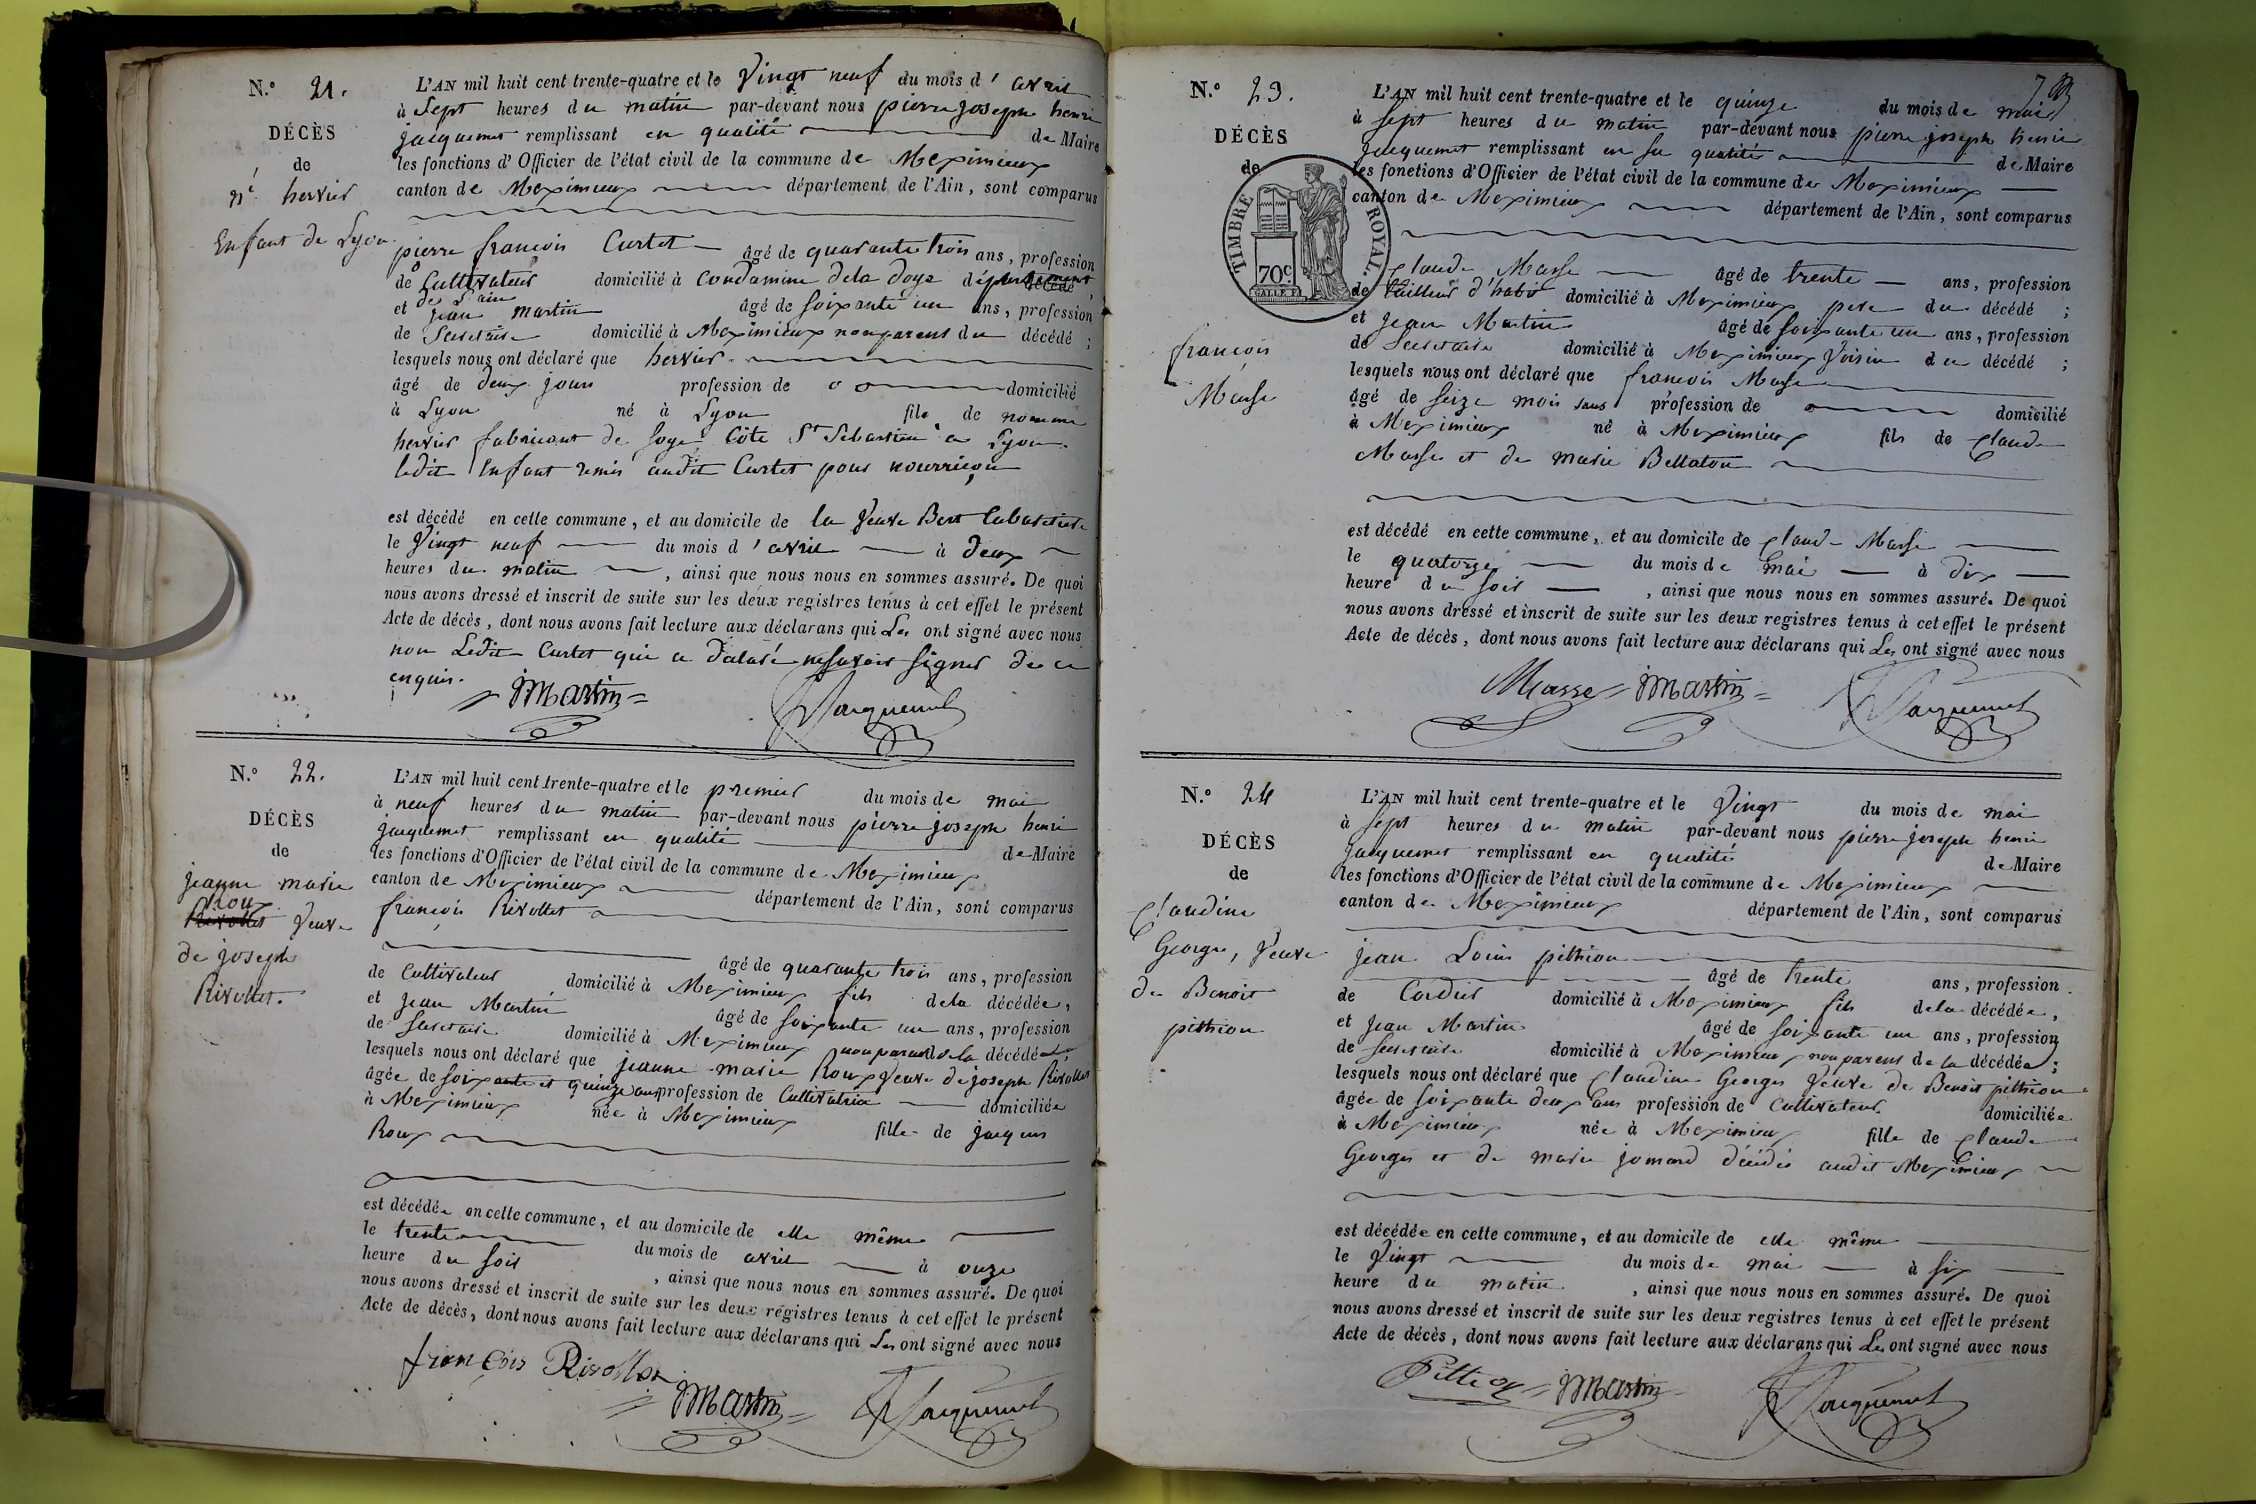 N.º 21.
DÉCÈS
de
né hervier
Enfant de Lyon.
L'AN mil huit cent trente-quatre et le Vingt neuf du mois d'avril
à Sept heures du matin par-devant nous pierre joseph henri
jacquemet remplissant en qualité de Maire
les fonctions d'Officier de l'état civil de la commune de Meximieux
canton de Meximieux département de l'Ain, sont comparus
pierre francois Curtet âgé de quarante trois ans, profession
de Cultivateur domicilié à Condamine dela doye département
de l'ain
et jean martin âgé de soixante un ans, profession
de Secretaire domicilié à Meximieux non parens du décédé ;
lesquels nous ont déclaré que hervier
âgé de deux jours profession de domicilié
à Lyon né à Lyon fils de nommé
hervier fabricant de soye Côte St Sebastien a Lyon
ledit Enfant remis audit Curtet pour nourriçon
est décédé en cette commune, et au domicile de la Veuve Bert Cabaretiere
le Vingt neuf du mois d'avril à deux
heures du matin, ainsi que nous nous en sommes assuré. De quoi
nous avons dressé et inscrit de suite sur les deux registres tenus à cet effet le présent
Acte de décès, dont nous avons fait lecture aux déclarans qui Les ont signé avec nous
non Ledit Curtet qui a déclaré ne savoir signer de ce
enquis.
JMartin Jacquemet
N.º 22.
DÉCÈS
de
jeanne marie
Roux
Rivollet Veuve
de joseph
Rivollet.
L'AN mil huit cent trente-quatre et le premier du mois de mai
à neuf heures du matin par-devant nous pierre joseph henri
jacquemet remplissant en qualité de Maire
les fonctions d'Officier de l'état civil de la commune de Meximieux
canton de Meximieux département de l'Ain, sont comparus
françois Rivollet
âgé de quarante trois ans, profession
de Cultivateur domicilié à Meximieux fils dela décédée,
et jean Martin âgé de soixante un ans, profession
de Secretaire domicilié à Meximieux non parens dela décédée ;
lesquels nous ont déclaré que jeanne marie Roux Veuve de joseph Rivollet
âgée de soixante et quinze ans profession de Cultivatrice domiciliée
à Meximieux née à Meximieux fille de jacques
Roux
est décédée en cette commune, et au domicile de elle même
le trente du mois de avril à onze
heure du soir, ainsi que nous nous en sommes assuré. De quoi
nous avons dressé et inscrit de suite sur les deux registres tenus à cet effet le présent
Acte de décès, dont nous avons fait lecture aux déclarans qui Les ont signé avec nous
françois Rivollet
JMartin Jacquemet
N.º 23.
DÉCÈS
de
TIMBRE ROYAL.
70c
françois
Masse
L'AN mil huit cent trente-quatre et le quinze du mois de mai
à sept heures du matin par-devant nous pierre joseph henri
jacquemet remplissant en sa qualité de Maire
les fonctions d'Officier de l'état civil de la commune de Meximieux
canton de Meximieux département de l'Ain, sont comparus
Claude Masse âgé de trente ans, profession
de tailleur d'habit domicilié à Meximieux pere du décédé ;
et jean Martin âgé de soixante un ans, profession
de Secretaire domicilié à Meximieux Voisin du décédé ;
lesquels nous ont déclaré que françois Masse
âgé de seize mois sans profession de domicilié
à Meximieux né à Meximieux fils de Claude
Masse et de marie Bellaton
est décédé en cette commune, et au domicile de Claude Masse
le quatorze du mois de mai à dix
heure du soir, ainsi que nous nous en sommes assuré. De quoi
nous avons dressé et inscrit de suite sur les deux registres tenus à cet effet le présent
Acte de décès, dont nous avons fait lecture aux déclarans qui Les ont signé avec nous
Masse JMartin Jacquemet
N.º 24
DÉCÈS
de
Claudine
Georges, Veuve
de Benoit
pithion
L'AN mil huit cent trente-quatre et le Vingt du mois de mai
à sept heures du matin par-devant nous pierre joseph henri
jacquemet remplissant en qualité de Maire
les fonctions d'Officier de l'état civil de la commune de Meximieux
canton de Meximieux département de l'Ain, sont comparus
jean Louis pithion
âgé de trente ans, profession
de Cordier domicilié à Meximieux fils dela décédée,
et jean Martin âgé de soixante un ans, profession
de Secretaire domicilié à Meximieux non parens de la décédée ;
lesquels nous ont déclaré que Claudine Georges Veuve de Benoit pithion
âgée de soixante deux ans profession de Cultivateur domiciliée
à Meximieux née à Meximieux fille de Claude
Georges et de marie jomard décédés audit Meximieux
est décédée en cette commune, et au domicile de elle même
le Vingt du mois de mai à six
heure du matin, ainsi que nous nous en sommes assuré. De quoi
nous avons dressé et inscrit de suite sur les deux registres tenus à cet effet le présent
Acte de décès, dont nous avons fait lecture aux déclarans qui Les ont signé avec nous
Pittion JMartin Jacquemet